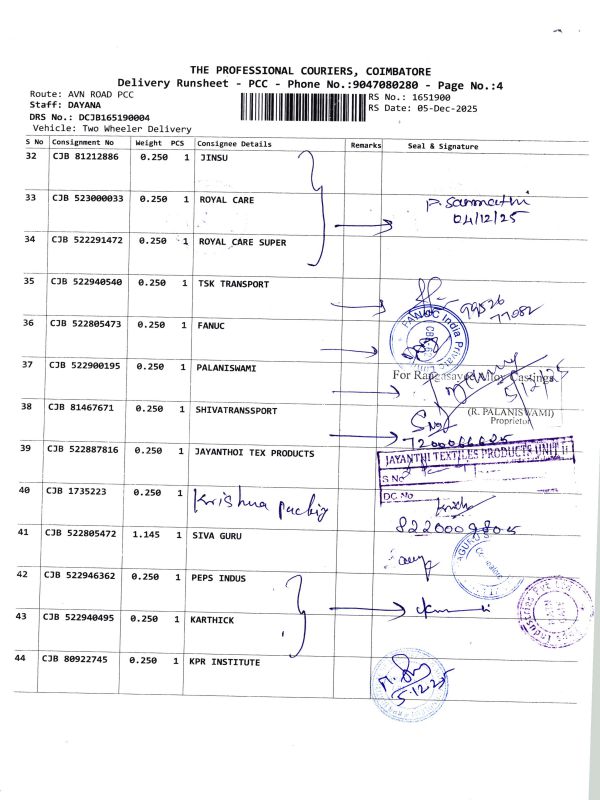 THE PROFESSIONAL COURIERS, COIMBATORE
Delivery Runsheet - PCC - Phone No.:9047080280 - Page No.:4
Route: AVN ROAD PCC
RS No.: 1651900
Staff: DAYANA
RS Date: 05-Dec-2025
DRS No.: DCJB165190004
Vehicle: Two Wheeler Delivery
S No Consignment No Weight PCS Consignee Details Remarks Seal & Signature
32 CJB 81212886 0.250 1 JINSU
33 CJB 523000033 0.250 1 ROYAL CARE
04/12/25
34 CJB 522291472 0.250 1 ROYAL CARE SUPER
35 CJB 522940540 0.250 1 TSK TRANSPORT
99526
77082
36 CJB 522805473 0.250 1 FANUC
FANUC India Private
37 CJB 522900195 0.250 1 PALANISWAMI
For Rangasayee Alloy Castings
5/12/25
(R. PALANISWAMI)
Proprietor
38 CJB 81467671 0.250 1 SHIVATRANSSPORT
39 CJB 522887816 0.250 1 JAYANTHOI TEX PRODUCTS
JAYANTHI TEXTILES PRODUCTS UNIT II
S No
DC No
40 CJB 1735223 0.250 1 Krishna packig
41 CJB 522805472 1.145 1 SIVA GURU
42 CJB 522946362 0.250 1 PEPS INDUS
43 CJB 522940495 0.250 1 KARTHICK
44 CJB 80922745 0.250 1 KPR INSTITUTE
5.12.25